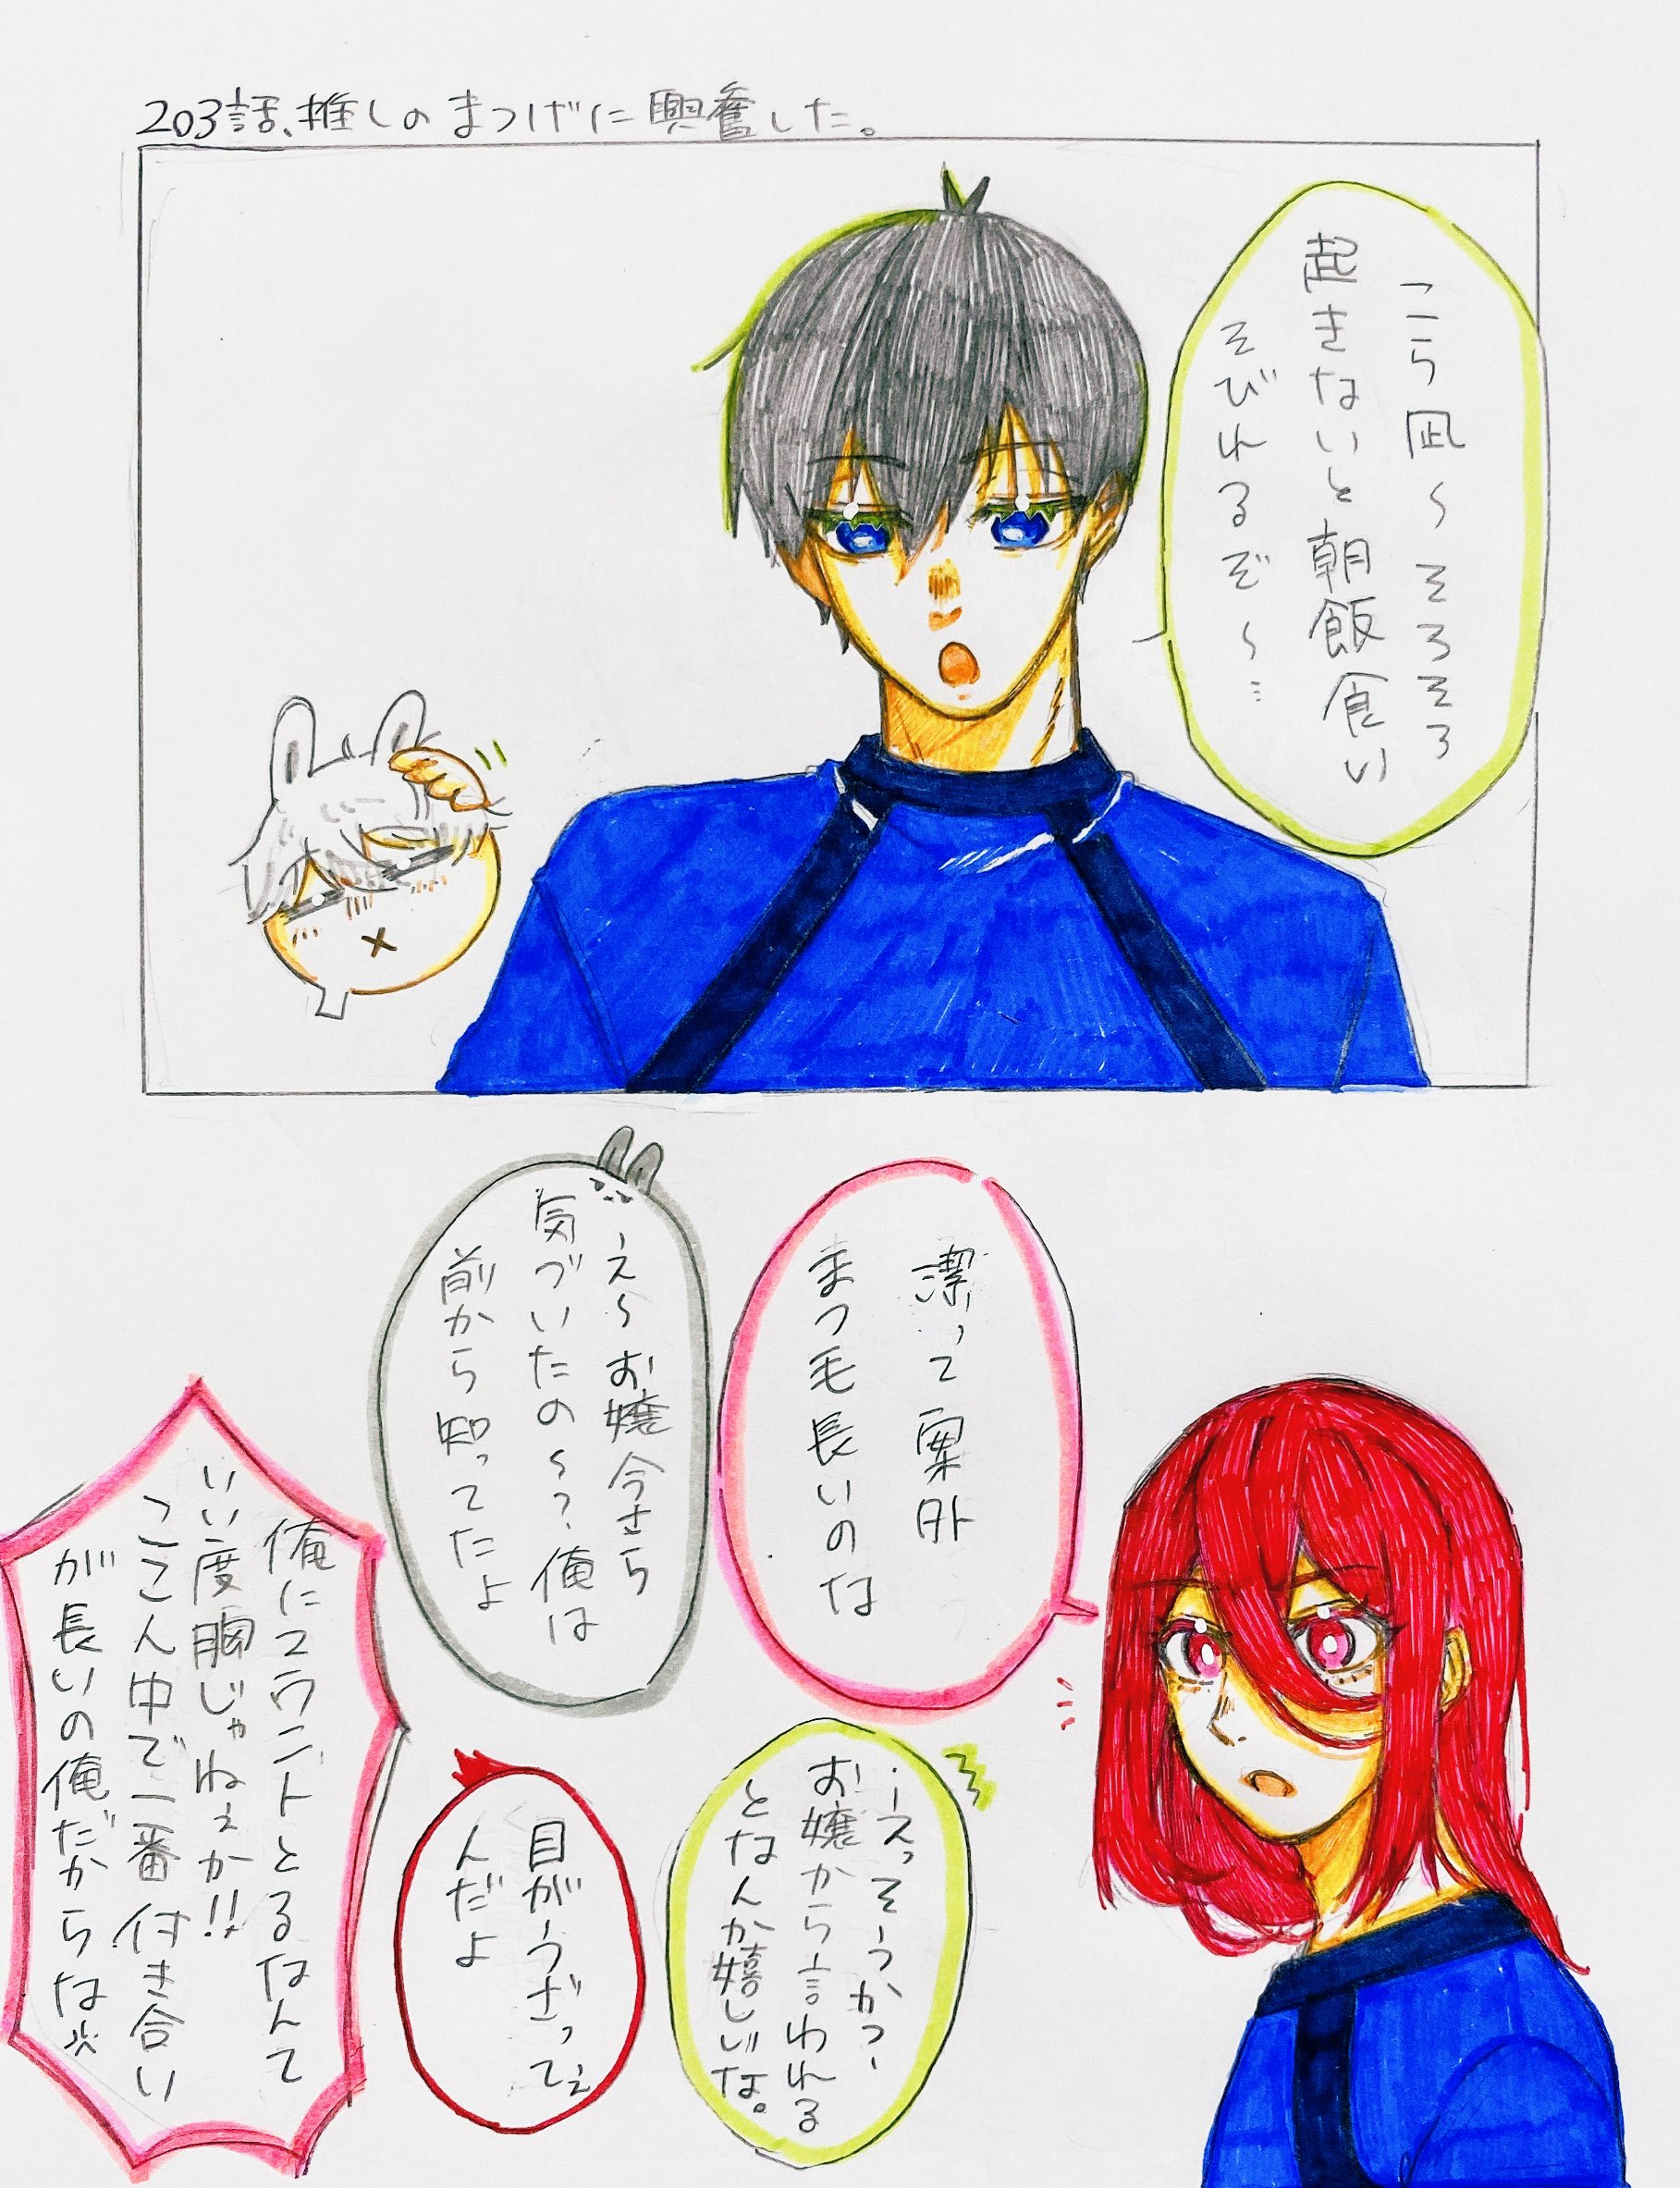 203話、推しのまつげに興奮した。
こら凪～そろそろ
起きないと朝飯食い
そびれるぞ～…
潔って案外
まつ毛長いのな
え～お嬢今さら
気づいたの～？俺は
前から知ってたよ
…えっそーかっ…
お嬢から言われる
となんか嬉しいな。
目がうざってぇ
んだよ
俺にマウントとるなんて
いい度胸じゃねぇか!!
ここん中で一番付き合い
が長いの俺だからな